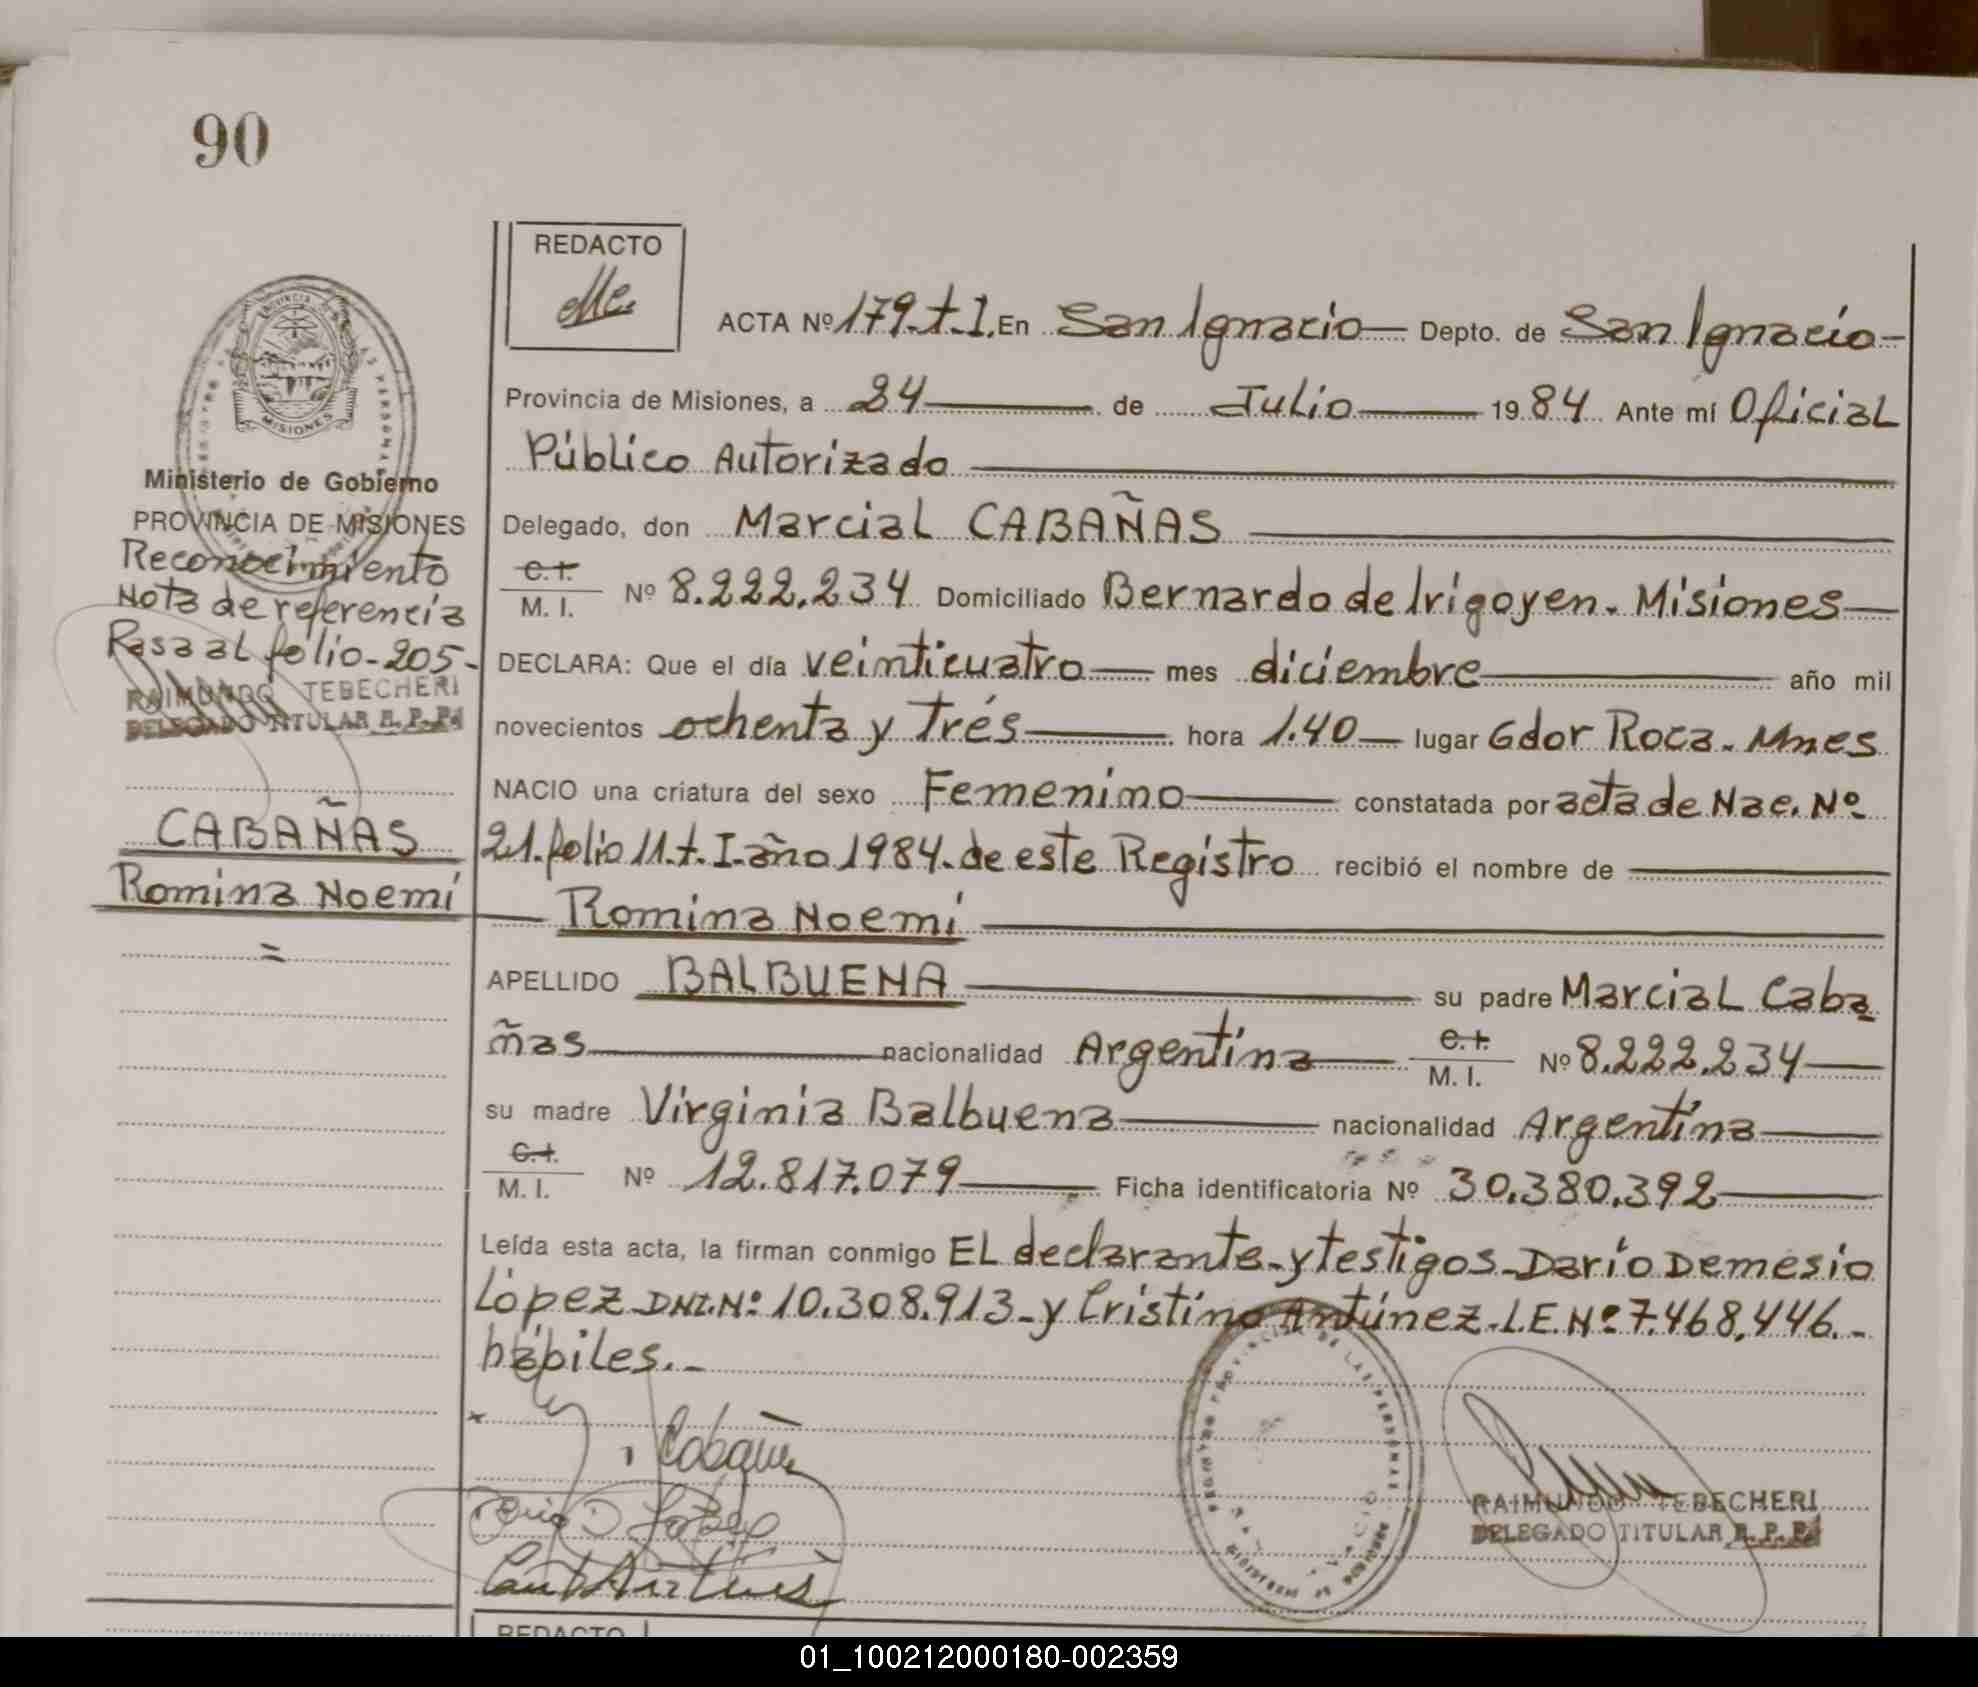 90
REDACTO
ACTA Nº 179.t.I. En San Ignacio Depto. de San Ignacio
Provincia de Misiones, a 24 de Julio 1984 Ante mí Oficial
Público Autorizado
Delegado, don Marcial CABAÑAS
C.I.
M. I. Nº 8.222.234 Domiciliado Bernardo de Irigoyen. Misiones
DECLARA: Que el día veinticuatro mes diciembre año mil
novecientos ochenta y trés hora 1.40 lugar Gdor Roca. Mnes
NACIO una criatura del sexo Femenino constatada por acta de Nac. Nº
21. folio 11. t. I. año 1984. de este Registro recibió el nombre de
Romina Noemí
APELLIDO BALBUENA su padre Marcial Caba
ñas nacionalidad Argentina C.I.
M. I. Nº 8.222.234
su madre Virginia Balbuena nacionalidad Argentina
C.I.
M. I. Nº 12.817.079 Ficha identificatoria Nº 30.380.392
Leída esta acta, la firman conmigo El declarante-y testigos-Darío Demesio
López DNI.Nº 10.308.913-y Cristino Antúnez-L.E.Nº 7.468.446.-
hábiles.-
RAIMUNDO TEBECHERI
DELEGADO TITULAR R. P. P.
PROVINCIA
MISIONES
Ministerio de Gobierno
PROVINCIA DE MISIONES
Reconocimiento
Nota de referencia
Pasa al folio-205-
RAIMUNDO TEBECHERI
DELEGADO TITULAR R. P. P.
CABAÑAS
Romina Noemí
=
REDACTO
01_100212000180-002359